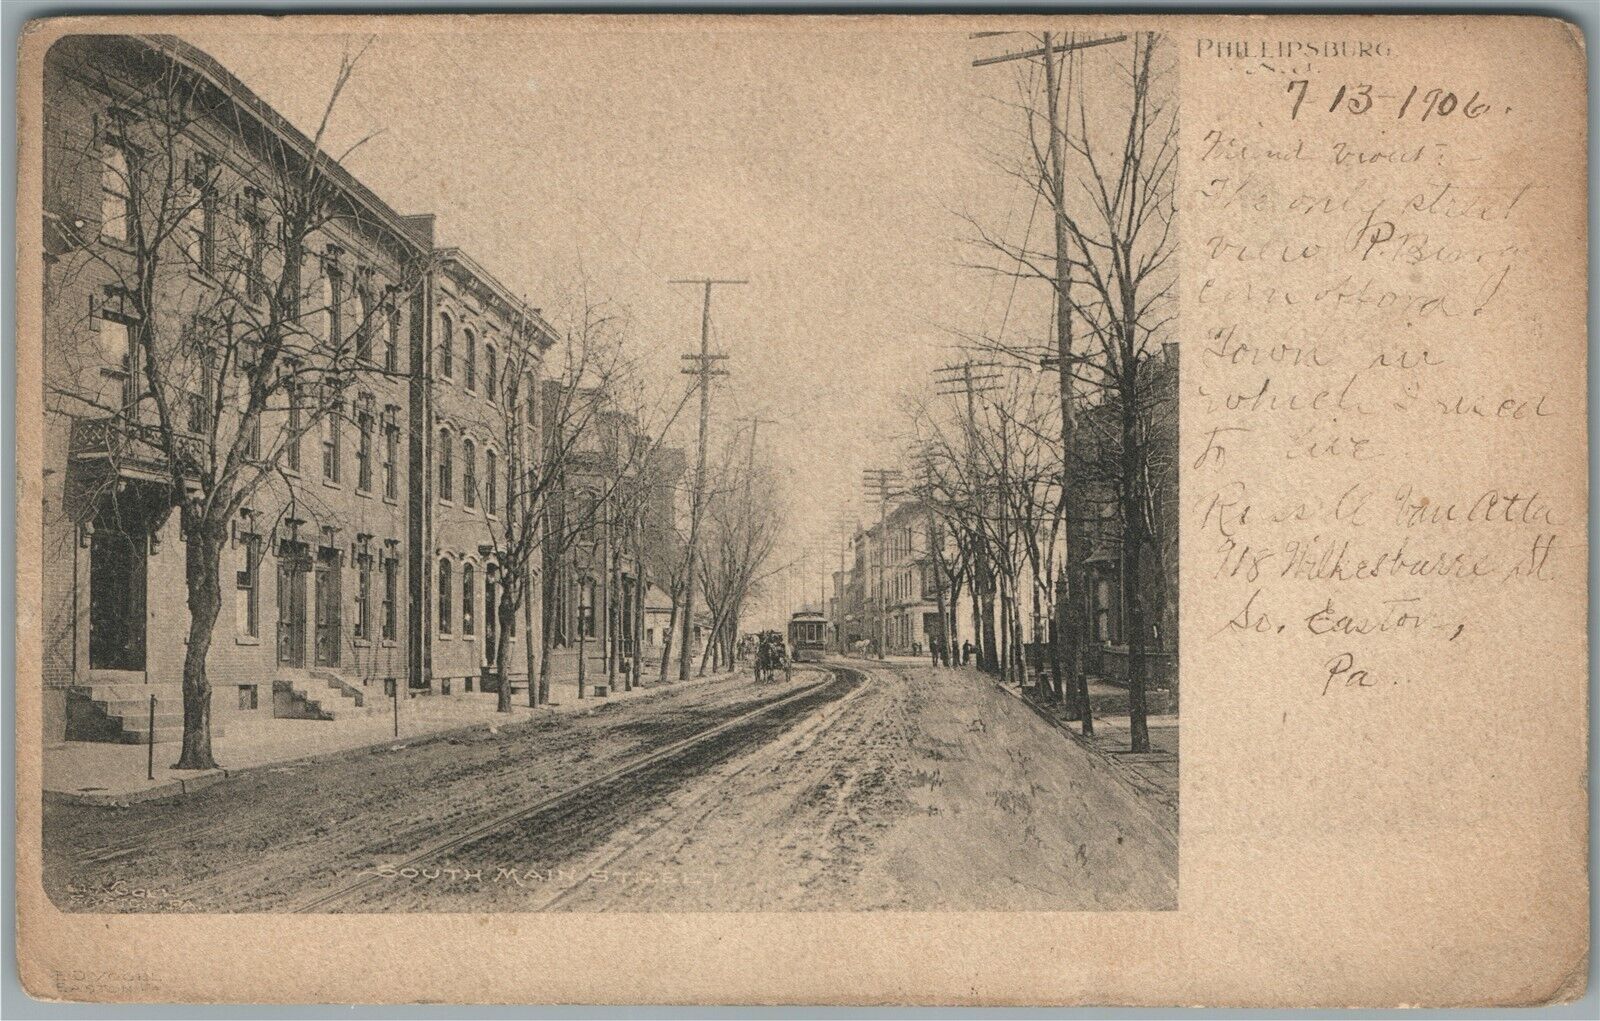 PHILLIPSBURG.
N. J.
7-13-1906.
Friend
The only street
view P. Burg
can afford!
Town in
which I used
to live.
Russell Van Atta
918 Wilkesbarre St.
So. Easton,
Pa.
SOUTH MAIN STREET
EASTON, PA.
EASTON PA